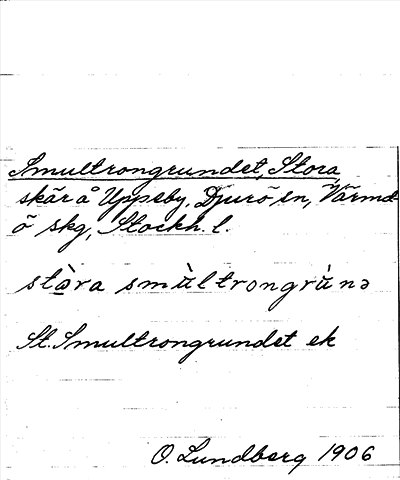 Smultrongrundet, Stora
skär å Uppeby, Djurö sn, Värmd-
ö skg, Stockh. l.
stòra smùltrongrùnə
St. Smultrongrundet ek
O. Lundberg 1906